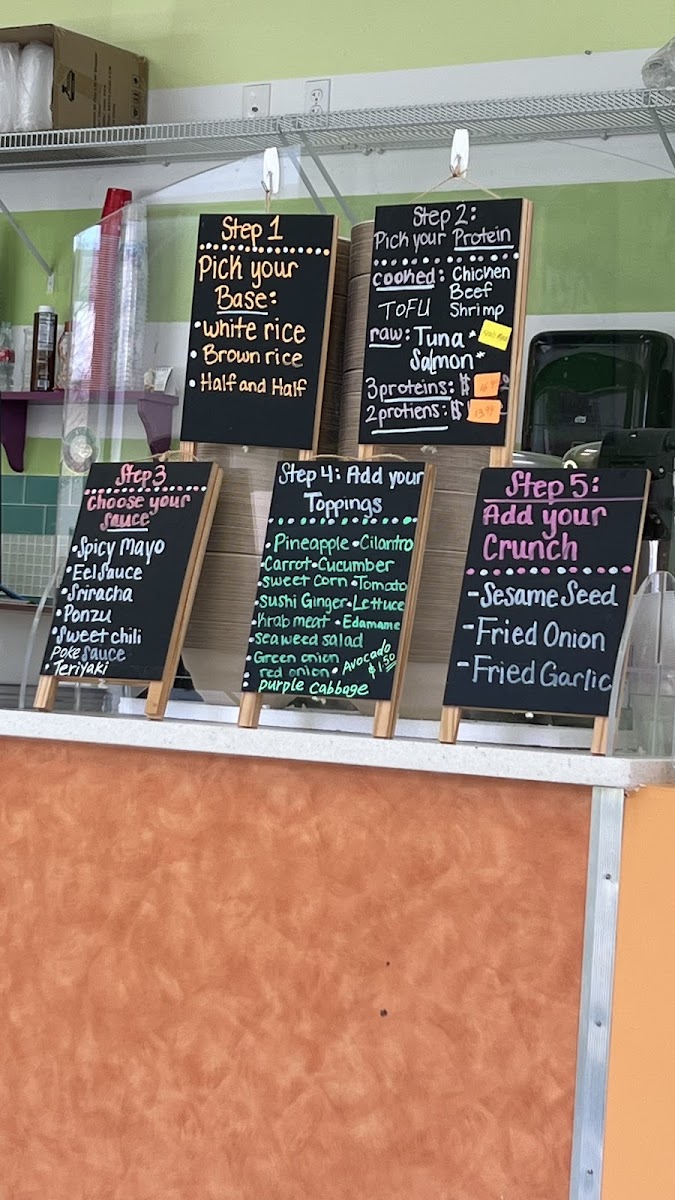 Step 1
Pick your
Base:
• white rice
• Brown rice
• Half and Half
Step 2:
Pick your Protein
cooked: Chicken
Beef
TOFU Shrimp
raw: Tuna*
Salmon*
3 proteins: $
2 protiens: $
Step 3
Choose your
sauce
• Spicy mayo
• Eel Sauce
• Sriracha
• Ponzu
• Sweet chili
Poke Sauce
• Teriyaki
Step 4: Add your
Toppings
• Pineapple • Cilantro
• Carrot • Cucumber
• sweet Corn • Tomato
• sushi Ginger • Lettuce
• Krab meat • Edamame
• seaweed salad
• Green onion
red onion •
Avocado
$1.50
• purple cabbage
Step 5:
Add your
Crunch
- Sesame Seed
- Fried Onion
- Fried Garlic